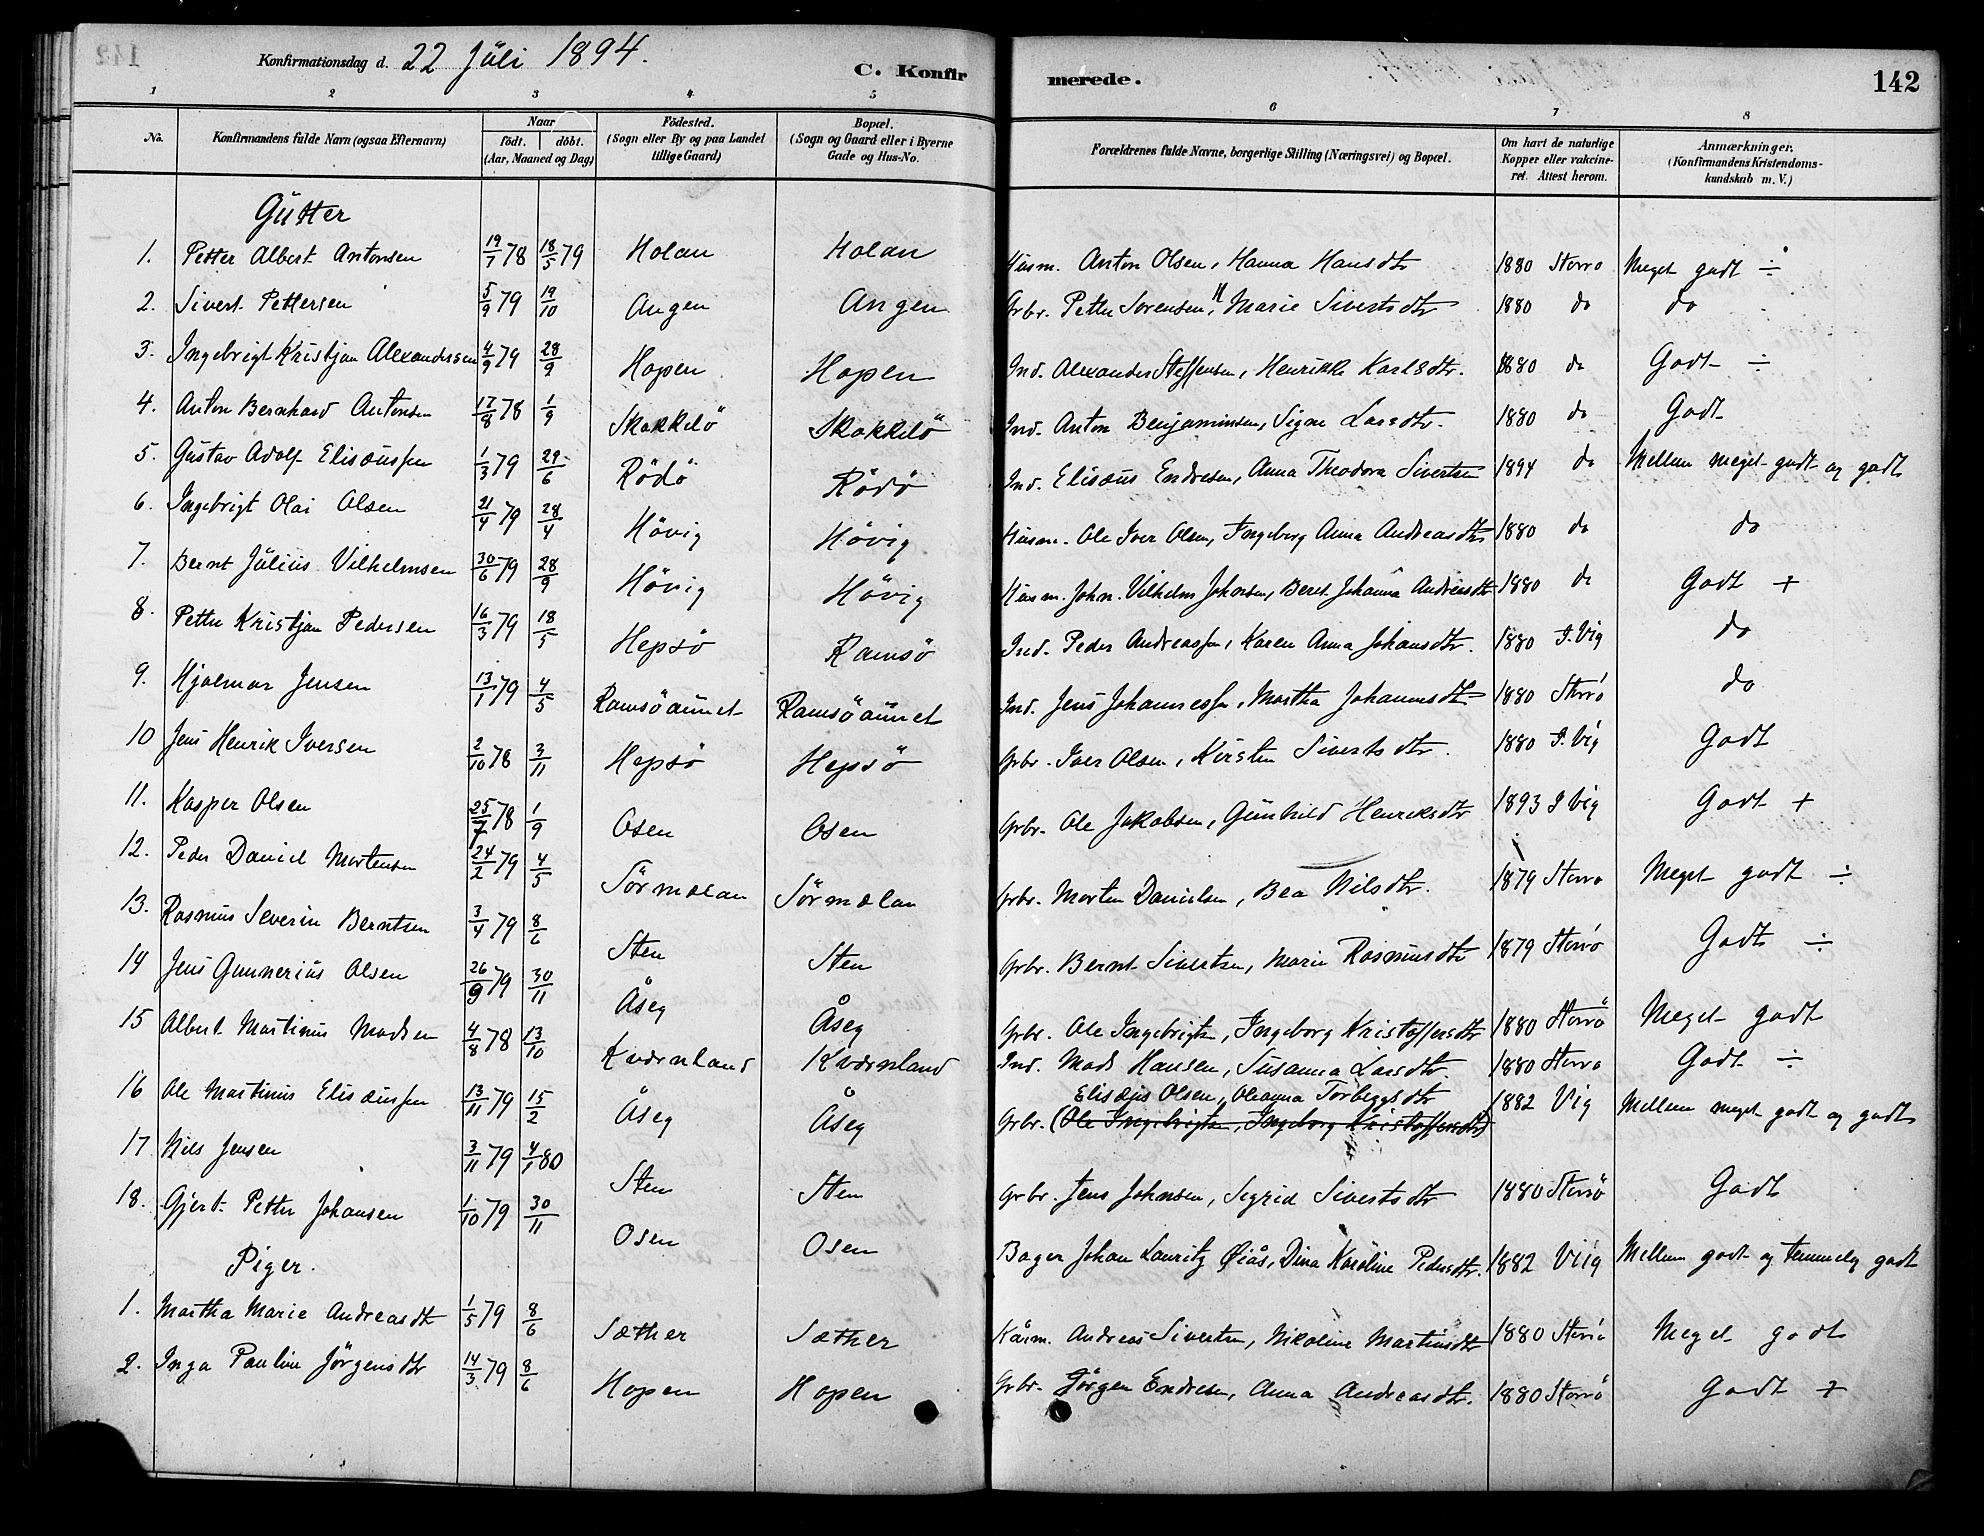 Konfirmationsdag d. 22 Juli 1894. C. Konfirmerede. 142
1 2 3 4 5 6 7 8
No. Konfirmandens fulde Navn (ogsaa Efternavn) Naar født. døbt. (Aar, Maaned og Dag) Födested. (Sogn eller By og paa Landet tillige Gaard) Bopæl. (Sogn og Gaard eller i Byerne Gade og Hus-No. Forældrenes fulde Navne, borgerlige Stilling (Næringsvei) og Bopæl. Om havt de naturlige Kopper eller vakcineret. Attest herom. Anmærkninger. (Konfirmandens Kristendomskundskab m. V.)
Gutter
1. Petter Albert Antonsen 19/7 78 18/5 79 Holan Holan Husm. Anton Olsen, Hanna Hansdtr 1880 Storrö Meget godt ÷
2. Sivert Pettersen 5/9 79 19/10 Angen Angen Grbr. Petter Sorensen, Marie Sivertsdtr 1880 do do
3. Ingebrigt Kristjan Alexandersen 4/9 79 28/9 Hopen Hopen Ind. Alexander Steffensen, Henrikke Karlsdtr. 1880 do Godt ÷
4. Anton Bernhard Antonsen 17/8 78 1/9 Skokkelö Skokkelö Ind. Anton Benjaminsen, Signe Larsdtr. 1880 do Godt
5. Gustav Adolf Elisæussen 1/3 79 29/6 Rödö Rödö Ind. Elisæus Endresen, Anna Theodora Sivertsen 1894 do Mellem meget godt og godt
6. Ingebrigt Olai Olsen 21/4 79 28/4 Hövig Hövig Husm. Ole Iver Olsen, Ingeborg Anna Andreasdtr 1880 do do
7. Bernt Julius Vilhelmsen 30/6 79 28/9 Hövig Hövig Husm. John Vilhelm Johnsen, Beret Johanna Andreasdtr 1880 do Godt +
8. Petter Kristjan Pedersen 16/3 79 18/5 Hepsö Ramsö Ind. Peder Andreassen, Karen Anna Johansdtr. 1880 J. Vig do
9. Hjalmar Jensen 13/1 79 4/5 Ramsöaunet Ramsöaunet Ind. Jens Johannessen, Martha Johannsdtr 1880 Storrö do
10 Jens Henrik Iversen 2/10 78 3/11 Hepsö Hepsö Grbr. Iver Olsen, Kirsten Sivertsdtr. 1880 J. Vig Godt
11. Kasper Olsen 25/7 78 1/9 Osen Osen Grbr. Ole Jakobsen, Gunhild Henriksdtr 1893 J Vig Godt +
12. Peder Daniel Mortensen 24/2 79 4/5 Sörmelan Sörmelan Grbr. Morten Danielsen, Bea Nilsdtr. 1879 Storrö Meget godt ÷
13. Rasmus Severin Berntsen 3/4 79 8/6 Sten Sten Grbr. Bernt Sivertsen, Marie Rasmusdtr 1879 Storrö Godt ÷
14 Jens Gunnerius Olsen 26/9 79 30/11 Åseg Åseg Grbr. Ole Ingebrigtsen, Ingeborg Kristoffersdtr 1880 Storrö Meget godt
15 Albert Martinus Madsen 4/8 78 13/10 Kværnland Kværnland Ind. Mads Hansen, Susanna Larsdtr. 1880 Storrö Godt ÷
Elisæus Olsen, Oleanna Torbegsdtr
16 Ole Martinus Elisæussen 13/11 79 15/2 Åseg Åseg Grbr. (Ole Ingebrigtsen, Ingeborg Kristoffersdtr) 1882 Vig Mellem meget godt og godt
17 Nils Jensen 3/11 79 4/1 80 Sten Sten Grbr. Jens Johnsen, Sigrid Sivertsdtr 1880 Storrö Godt
18. Gjert Petter Johansen 1/10 79 30/11 Osen Osen Bager Johan Lauritz Øiås, Dina Karoline Pedersdtr. 1882 Viig Mellem godt og temmelig godt
Piger.
1. Martha Marie Andreasdtr 1/5 79 8/6 Sæther Sæther Kårm. Andreas Sivertsen, Nikoline Martinsdtr 1880 Storrö Meget godt
2. Inga Pauline Jörgensdtr 14/3 79 8/6 Hopen Hopen Grbr. Jörgen Endresen, Anna Andreasdtr. 1880 Storrö Godt +